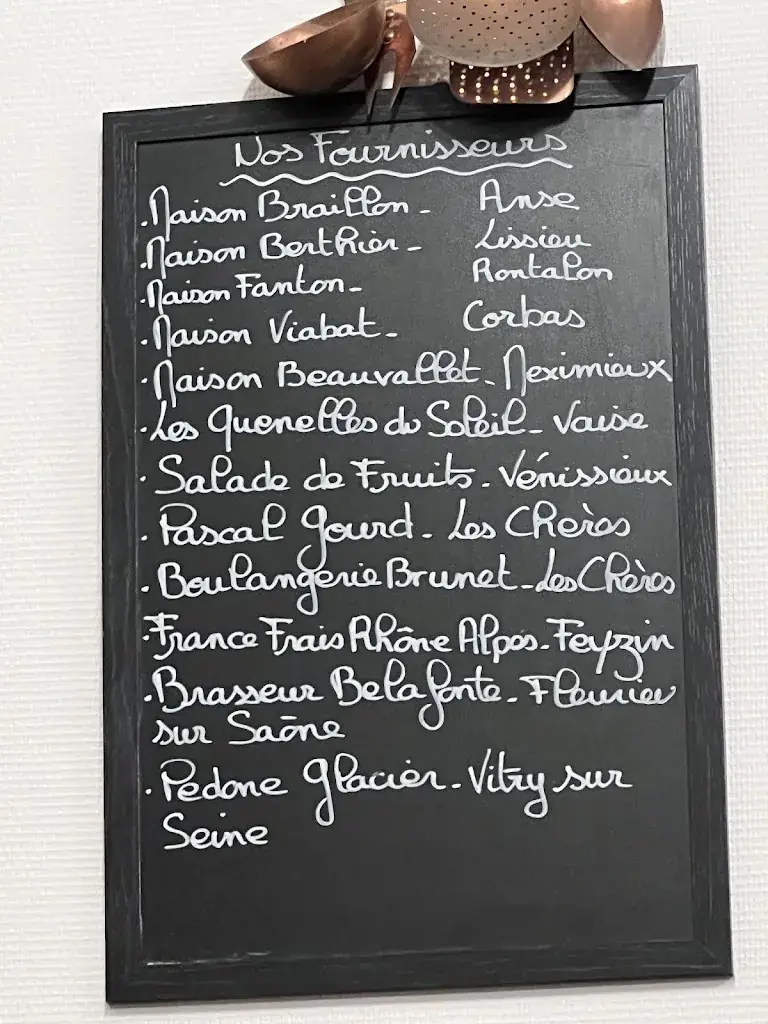 Nos Fournisseurs
. Maison Braillon - Anse
. Maison Berthier - Lissieu
. Maison Fanton - Rontalon
. Maison Viabat - Corbas
. Maison Beauvallet - Meximieux
. Les Quenelles du Soleil - Vaise
. Salade de Fruits - Vénissieux
. Pascal Gourd - Les Chères
. Boulangerie Brunet - Les Chères
. France Frais Rhône Alpes - Feyzin
. Brasseur Belafonte - Fleurieu
sur Saône
. Pedone Glacier - Vitry sur
Seine